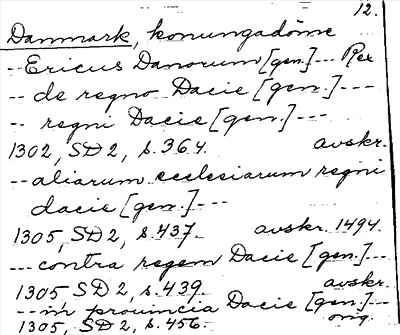 12.
Danmark, konungadöme
-- Ericus Danorum [gen.] --- Rex
-- de regno Dacie [gen.] ---
-- regni Dacie [gen.] ---
1302, SD 2, s. 364. avskr.
-- aliarum ecclesiarum regni
dacie [gen.] ---
1305, SD 2, s. 437. avskr. 1494.
--- contra regem Dacie [gen.] ---
1305 SD 2, s. 439. avskr.
-- in prouincia Dacie [gen.] ---
1305, SD 2, s. 456. orig.